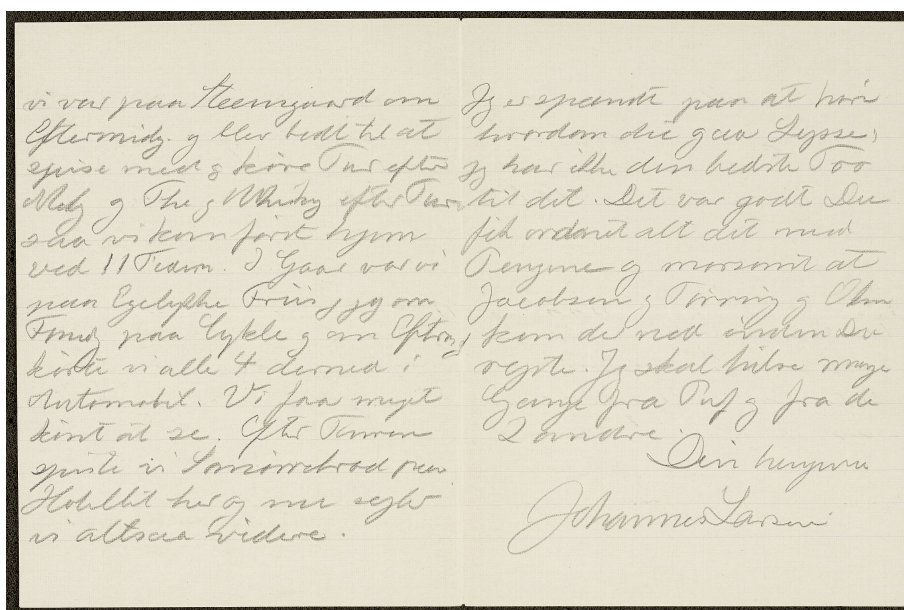 vi var paa Steensgaard om
Eftermidg. og blev bedt til at
spise med og køre Tur efter
Midg og The og Whisky efter Tur
saa vi kom først hjem
ved 11 Tiden. I Gaar var vi
paa Egeløkke Friis og jeg om
Formdg paa Cykle og om Eftermdg
kørte vi alle 4 derned i
Automobil. Vi faar meget
kønt at se. Efter Turen
spiste vi Smørrebrød paa
Hotellet her og nu sejler
vi altsaa videre.
Jeg er spændt paa at høre
hvordan det gaar Lysse,
jeg har ikke den bedste Tro
til det. Det var godt Du
fik ordnet alt det med
Pengene og morsomt at
Jacobsen og Tørring og
kom de ned inden Du
rejste. Jeg skal hilse mange
Gange fra Puf og fra de
2 andre.
Din hengivne
Johannes Larsen